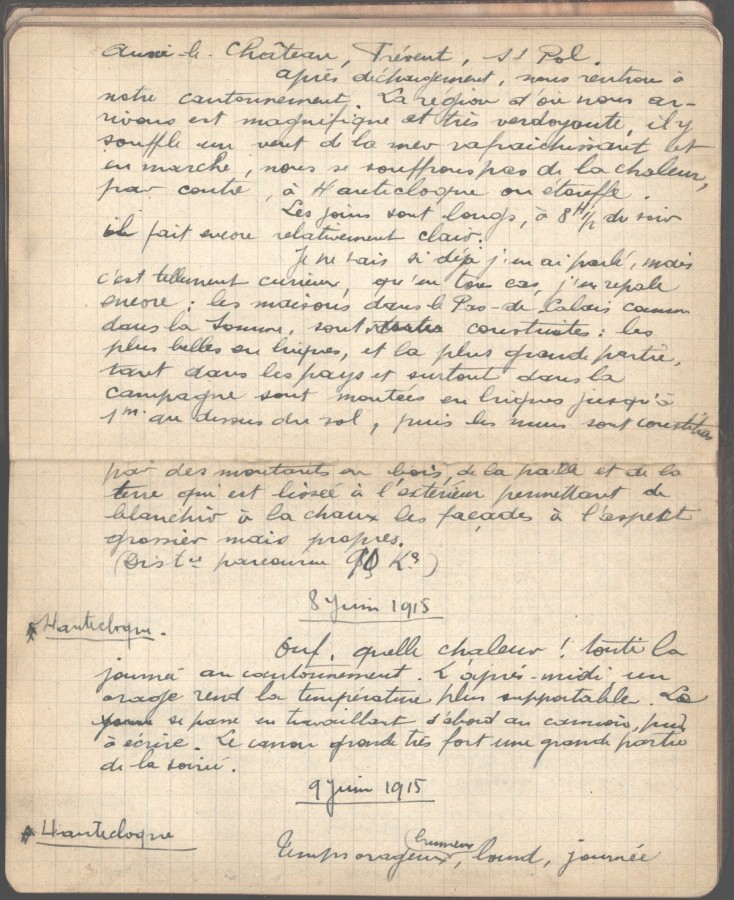 Auxi-le-Château, Frévent, St Pol.
après déchargement, nous rentron à
notre cantonnement. La région d'où nous ar-
rivons est magnifique et très verdoyante, il y
souffle un vent de la mer rafraichissant et
en marche, nous ne souffrons pas de la chaleur,
par contre, à Hautecloque on étouffe.
Les jours sont longs, à 8 H 1/2 du soir
il fait encore relativement clair.
Je ne sais si déjà j'en ai parlé, mais
c'est tellement curieux, qu'en tous cas, j'en reparle
encore : les maisons dans le Pas-de-Calais comme
dans la Somme, sont toutes construites : les
plus belles en briques, et la plus grande partie,
tant dans les pays et surtout dans la
campagne sont montées en briques jusqu'à
1m. au dessus du sol, puis les murs sont constitués
par des montants en bois, de la paille et de la
terre qui est lissée à l'extérieur permettant de
blanchir à la chaux les façades à l'aspect
grossier mais propres.
(Distce parcourue 90 Ks)
8 Juin 1915
Hautecloque.
Ouf, quelle chaleur ! toute la
journée au cantonnement. L'après-midi un
orage rend la température plus supportable. La
se passe en travaillant d'abord au camion, puis
à écrire. Le canon gronde très fort une grande partie
de la soirée.
9 Juin 1915
Hautecloque
Temps orageux, brumeux, lourd, journée